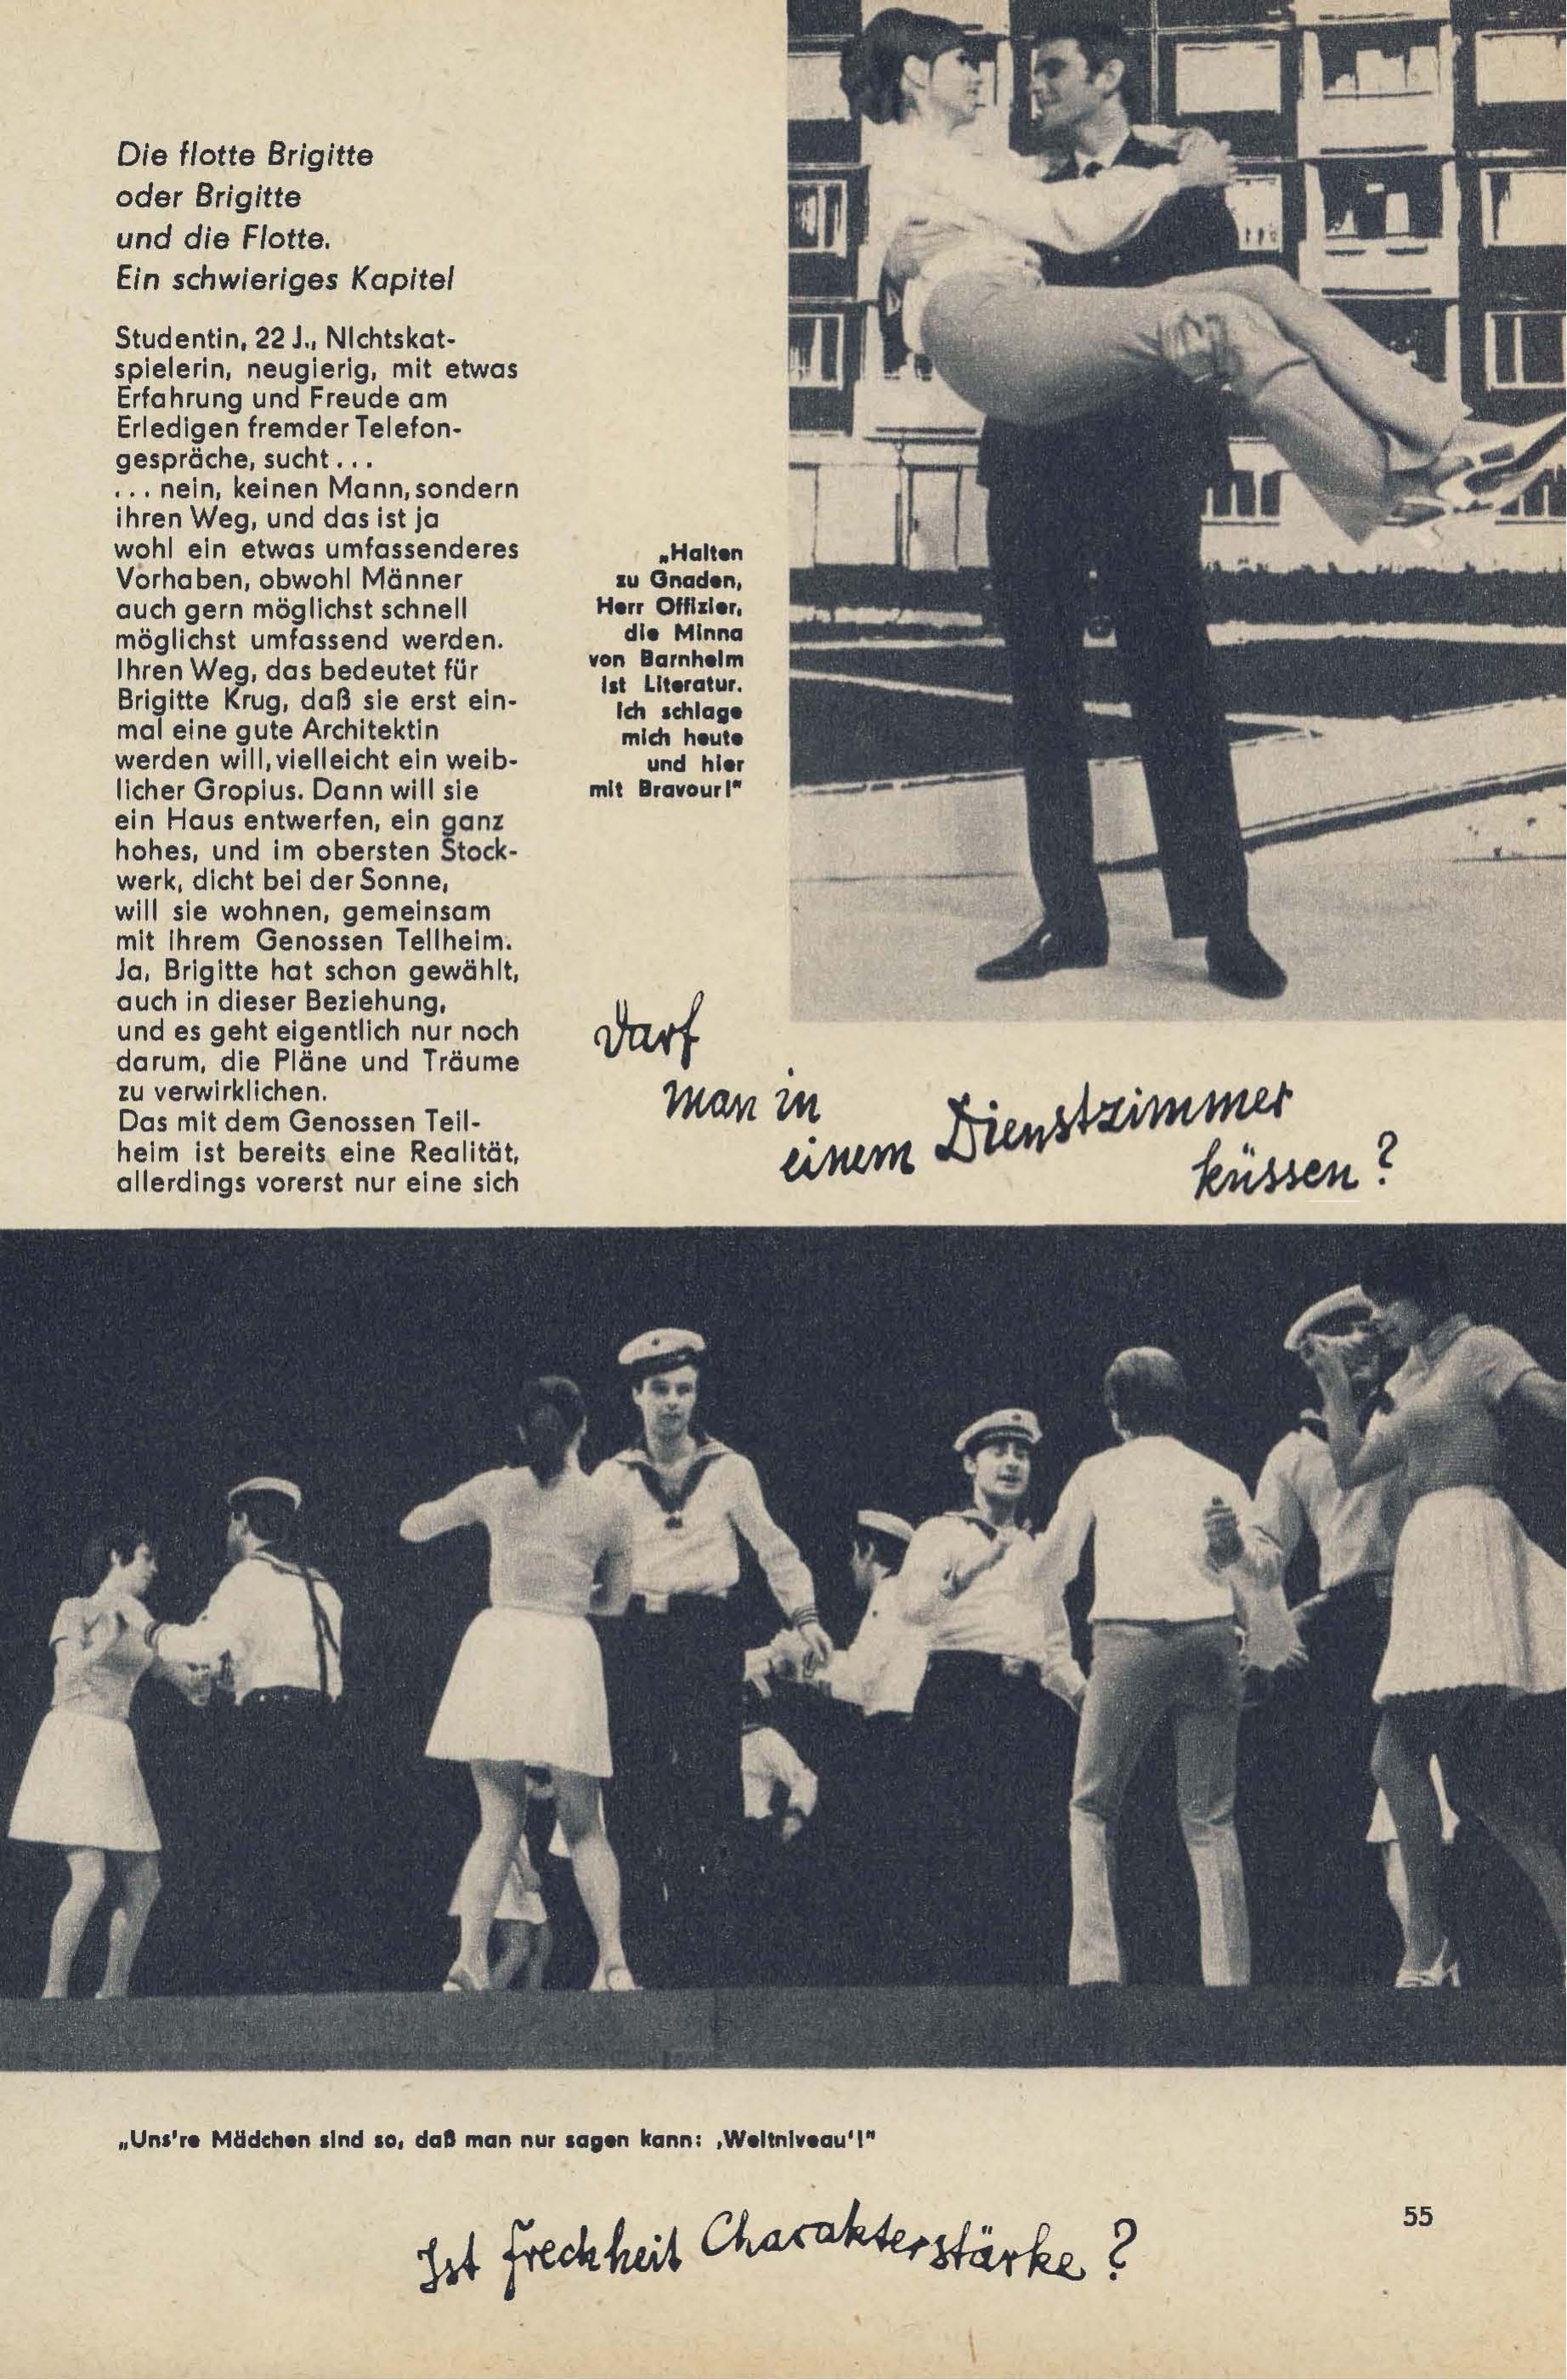 Die flotte Brigitte
oder Brigitte
und die Flotte.
Ein schwieriges Kapitel
Studentin, 22 J., Nichtskat-
spielerin, neugierig, mit etwas
Erfahrung und Freude am
Erledigen fremder Telefon-
gespräche, sucht...
... nein, keinen Mann, sondern
ihren Weg, und das ist ja
wohl ein etwas umfassenderes
Vorhaben, obwohl Männer
auch gern möglichst schnell
möglichst umfassend werden.
Ihren Weg, das bedeutet für
Brigitte Krug, daß sie erst ein-
mal eine gute Architektin
werden will, vielleicht ein weib-
licher Gropius. Dann will sie
ein Haus entwerfen, ein ganz
hohes, und im obersten Stock-
werk, dicht bei der Sonne,
will sie wohnen, gemeinsam
mit ihrem Genossen Tellheim.
Ja, Brigitte hat schon gewählt,
auch in dieser Beziehung,
und es geht eigentlich nur noch
darum, die Pläne und Träume
zu verwirklichen.
Das mit dem Genossen Tell-
heim ist bereits eine Realität,
allerdings vorerst nur eine sich
„Halten
zu Gnaden,
Herr Offizier,
die Minna
von Barnhelm
ist Literatur.
Ich schlage
mich heute
und hier
mit Bravour!"
Darf
man in
einem Dienstzimmer
küssen?
„Uns're Mädchen sind so, daß man nur sagen kann: ‚Weltniveau'!"
55
Ist Frechheit Charakterstärke?